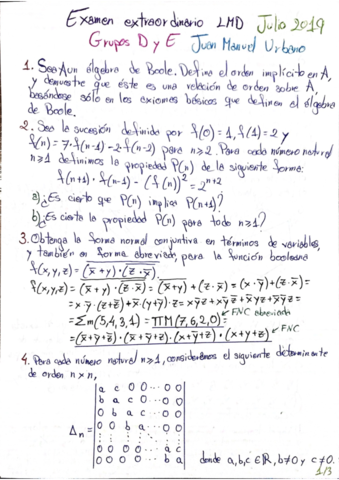 Examen extraordinario LMD Julio 2019
Grupos D y E Juan Manuel Urbano
1. Sea A un álgebra de Boole. Defina el orden implícito en A,
y demuestre que éste es una relación de orden sobre A,
basándose sólo en los axiomas básicos que definen el álgebra
de Boole.
2. Sea la sucesión definida por f(0)=1, f(1)=2 y
f(n)=7·f(n-1)-2·f(n-2) para n≥2. Para cada número natural
n≥1 definimos la propiedad P(n) de la siguiente forma:
f(n+1)·f(n-1)-(f(n))²=2ⁿ⁺²
a) ¿Es cierto que P(n) implica P(n+1)?
b) ¿Es cierta la propiedad P(n) para todo n≥1?
3. Obtenga la forma normal conjuntiva en términos de variables,
y también en forma abreviada, para la función booleana
f(x,y,z)=(x̄+y)·(z·x̄).
f(x,y,z)=(x̄+y)·(z·x̄)=(x̄+y)+(z·x̄)=(x·ȳ)+(z·x̄)=
=xȳ·(z+z̄)+x̄·(y+ȳ)·z=xȳz+xȳz̄+x̄yz+x̄ȳz=
=Σm(5,4,3,1)=ΠM(7,6,2,0)= FNC abreviada
=(x̄+ȳ+z̄)·(x̄+ȳ+z)·(x+ȳ+z)·(x+y+z) FNC
4. Para cada número natural n≥1, consideremos el siguiente determinante
de orden n×n,
a c 0 0 ··· 0 0
b a c 0 ··· 0 0
0 b a c ··· 0 0
Δn = 0 0 b a ··· 0 0
0 0 0 0 ··· a c
0 0 0 0 ··· b a
donde a,b,c∈ℝ, b≠0 y c≠0.
1/3